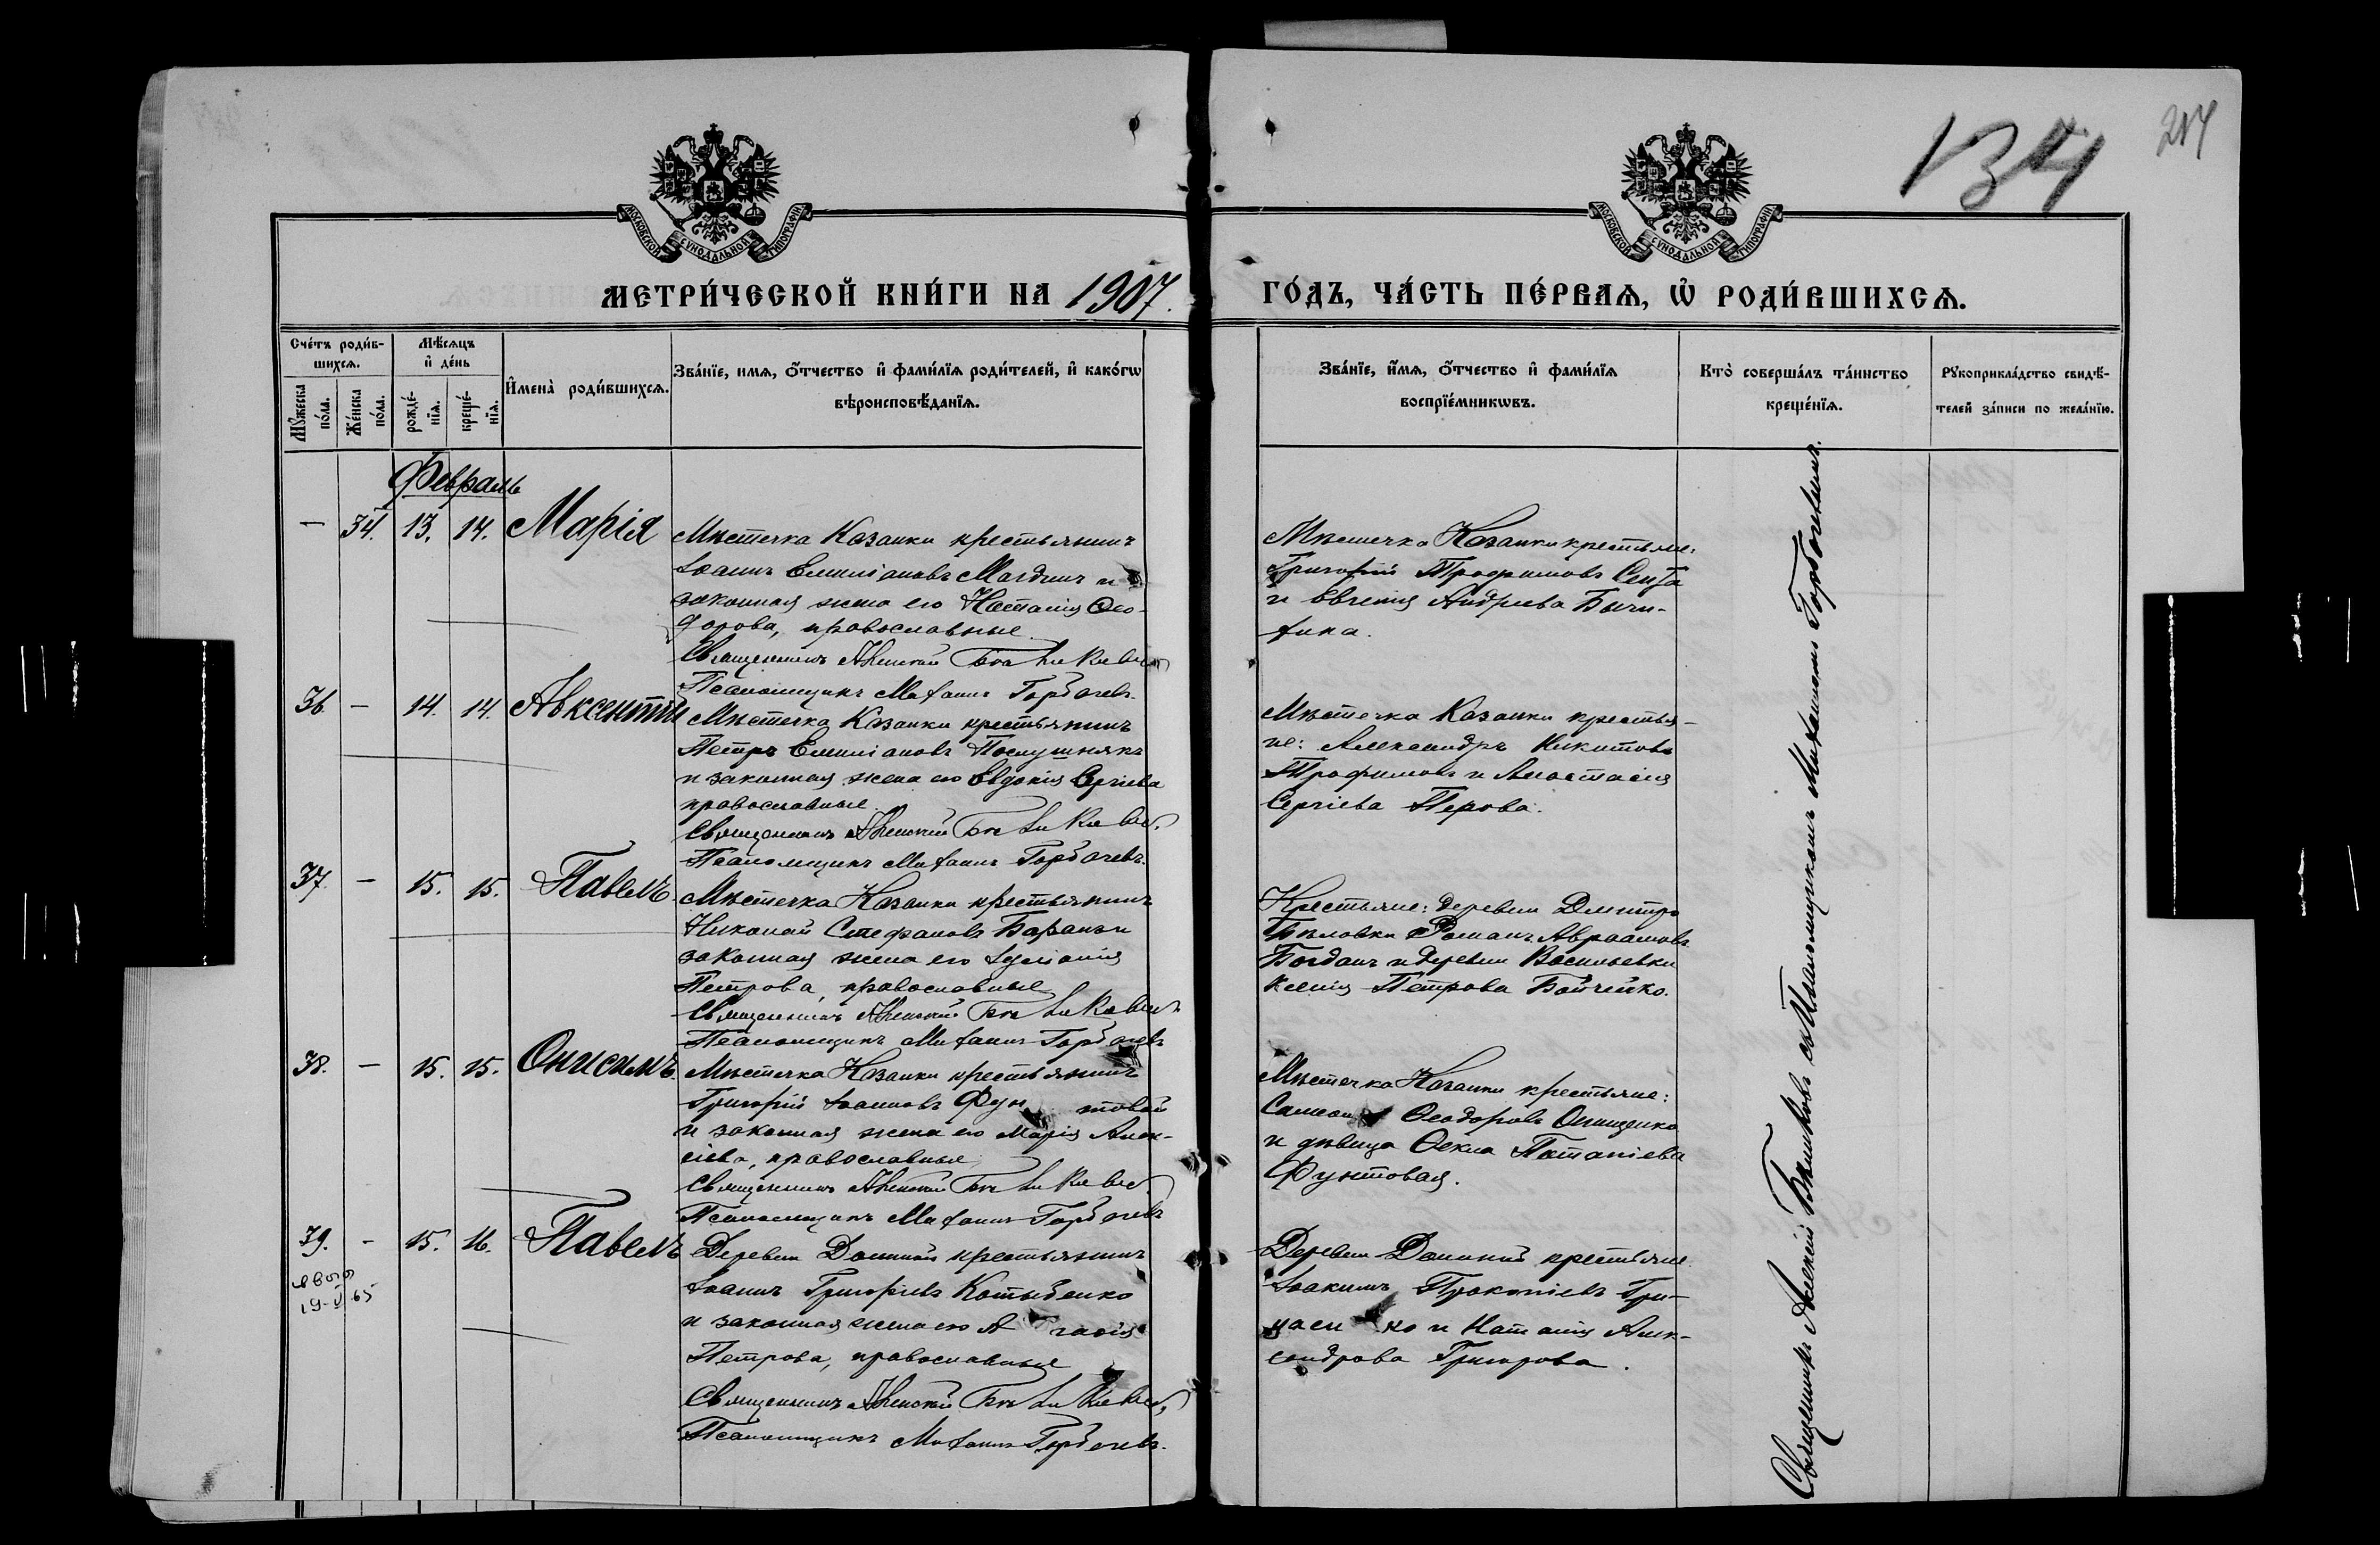 134
217
МОСКОВСКОЙ СѴНОДАЛЬНОЙ ТИПОГРАФІИ
МОСКОВСКОЙ СѴНОДАЛЬНОЙ ТИПОГРАФІИ
МЕТРИ́ЧЕСКОЙ КНИ́ГИ НА 1907.
ГО́ДЪ, ЧА́СТЬ ПЕ́РВАѦ, Ѡ҆ РОДИ́ВШИХСѦ.
Сче́тъ роди́в-
шихсѧ.
Мꙋ́жеска по́ла.
Же́нска по́ла.
Мѣ́сѧцъ
и҆ де́нь
рожде́-
нїѧ.
креще́-
нїѧ.
И҆мена̀ роди́вшихсѧ.
Зва́нїе, имѧ, ѻ҆́тчество и҆ фами́лїѧ роди́телей, и҆ како́гѡ
вѣроисповѣ́данїѧ.
Зва́нїе, и҆́мѧ, ѻ҆́тчество и҆ фами́лїѧ
воспрїе́мникѡвъ.
Кто̀ соверша́лъ та́инство
креще́нїѧ.
Рꙋкоприкла́дство свидѣ́-
телей за́писи по жела́нїю.
Февраль
— 34. 13. 14. Марія
Мѣстечка Казанки крестьянинъ
Іоаннъ Емиліановъ Магдинъ и
законная жена его Наталія Ѳео-
дорова, православные.
Священникъ Алексѣй
Псаломщикъ Михаилъ Горбачевъ.
Мѣстечка Казанки крестьяне:
Григорій Трофимовъ
и Евгенія Андреева
36. — 14. 14. Авксентій
Мѣстечка Казанки крестьянинъ
Петръ Емиліановъ Послушнякъ
и законная жена его Евдокія Сергіева
православные.
Священникъ Алексѣй
Псаломщикъ Михаилъ Горбачевъ.
Мѣстечка Казанки крестья-
не: Александръ Никитовъ
Трофимовъ и Анастасія
Сергіева Перова.
37. — 15. 15. Павелъ
Мѣстечка Казанки крестьянинъ
Николай Стефановъ Баранъ и
законная жена его Іуліанія
Петрова, православные
Священникъ Алексѣй
Псаломщикъ Михаилъ Горбачевъ
Крестьяне: деревни Дмитро
Бѣловки Романъ Авраамовъ
Богданъ и деревни Васильевки
Ксенія Петрова Бойченко.
38. — 15. 15. Онисимъ.
Мѣстечка Казанки крестьянинъ
Григорій Іоанновъ Фун товой
и законная жена его Марія Алек-
сіева, православные
Священникъ Алексѣй
Псаломщикъ Михаилъ Горбачевъ
Мѣстечка Казанки крестьяне:
Ѳеодоровъ Онищенко
и дѣвица Ѳекла Потапіева
Фунтовая.
39. — 15. 16. Павелъ
19-V 65
Деревни Доминій крестьянинъ
Іоаннъ Григоріевъ Котыбенко
и законная жена его
Петрова, православные
Священникъ Алексѣй
Псаломщикъ Михаилъ Горбачевъ.
Деревни Доминій крестьяне
Іоакимъ Прокопіевъ Гри-
но и Наталія Алек-
сандрова Григорова.
Священникъ Алексій съ Псаломщикомъ Михаиломъ Горбачевымъ.